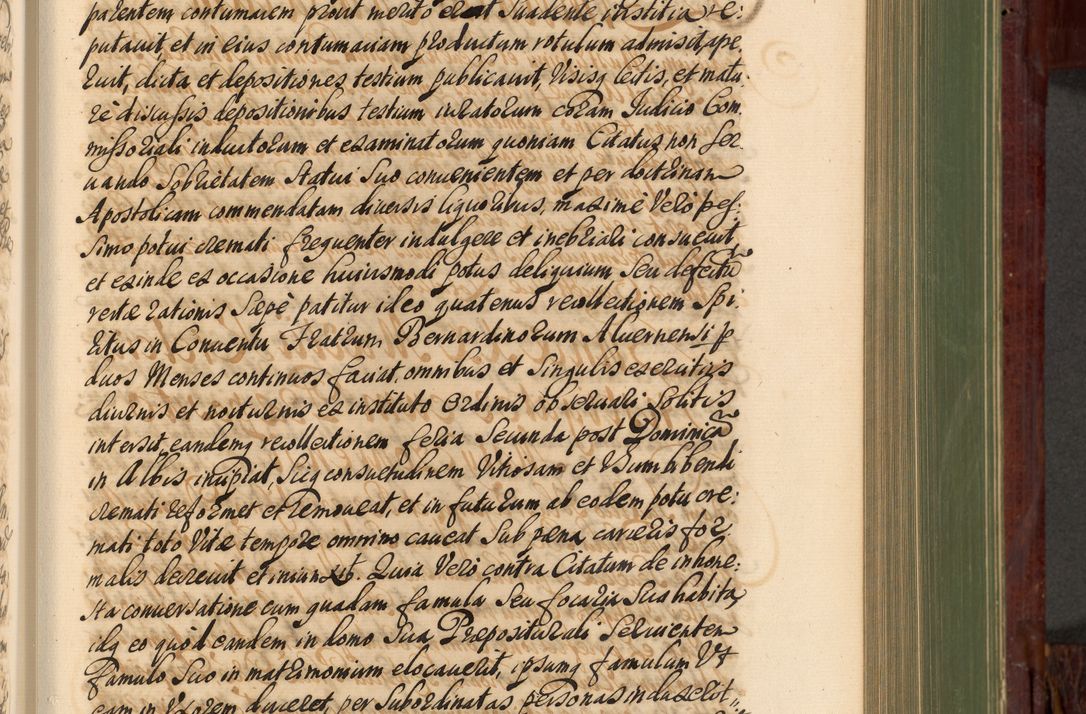 parentem contumacem prout merito erat Suadente iustitia re:
putauit, et in eius contumaciam productum rotulum admisit, ape,
ruit, dicta et depositiones testium publicauit, Visisq lectis, et matu,
rè discussis depositionibus testium iuratorum coram Judicio Com,
missoriali inductorum et examinatorum quoniam Citatus non Ser,
uando Sobrietatem Statui Suo conuenientem et per doctrinam
Apostolicam commendatam diuersis liquoribus, maximè Verò pes,
simo potui cremati frequenter indulgere et inebriari consueuit,
et exinde ex occasione huiusmodi potus deliquium Seu defectũ
rectæ rationis Sæpè patitur ideo quatenus recollectionem Spi,
ritus in Conuentu Fratrum Bernardinorum Aluernensi p
duos Menses continuos faciat, omnibus et Singulis exercitiis
diurnis et nocturnis ex instituto Ordinis obseruari Solitis
intersit, eandemq recollectionem feria Secunda post Dominicã
in Albis incipiat, Sicq consuetudinem Vitiosam et Usum bibendi
cremati reformet et remoueat, et in futurum ab eodem potu cre:
mati toto Vitæ tempore omnino caueat Sub pæna carceris for
malis decreuit et iniunxit. Quia Verò contra Citatum de inhone:
sta conuersatione cum quadam famula Seu focaria Sua habita,
idq eo quòd eandem in domo Sua Præpositurali Seruientem
famulo Suo in matrimonium elocauerit, ipsumq famulum Vt
eam in Vxorem duceret, per Subordinatas personas induxerit,